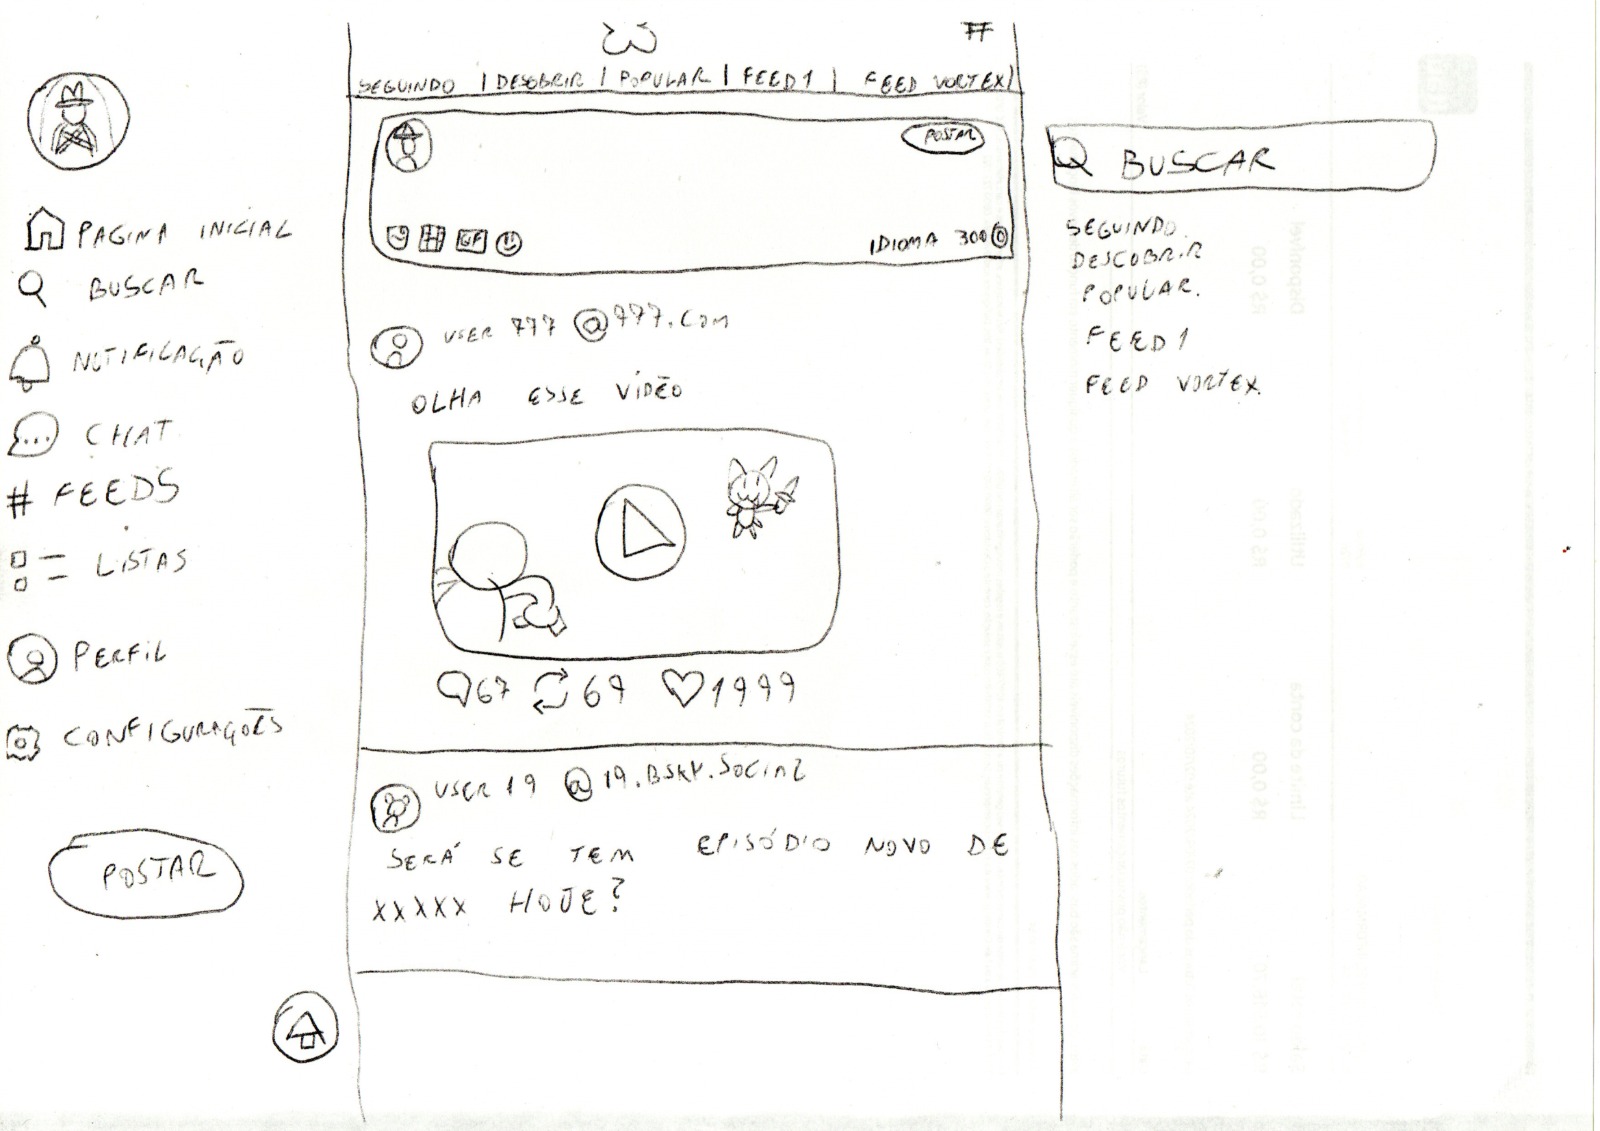 PAGINA INICIAL
BUSCAR
NOTIFICAÇÃO
CHAT
# FEEDS
LISTAS
PERFIL
CONFIGURAÇOẼS
POSTAR
#
SEGUINDO | DESOBRIR | POPULAR | FEED1 | FEED VORTEX |
POSTAR
GIF
IDIOMA 300
USER 777 @777.COM
OLHA ESSE VÍDEO
67 69 1999
USER 19 @19.BSKY.SOCIAL
SERÁ SE TEM EPISÓDIO NOVO DE
XXXXX HOJE?
BUSCAR
SEGUINDO.
DESCOBRIR
POPULAR.
FEED1
FEED VORTEX.